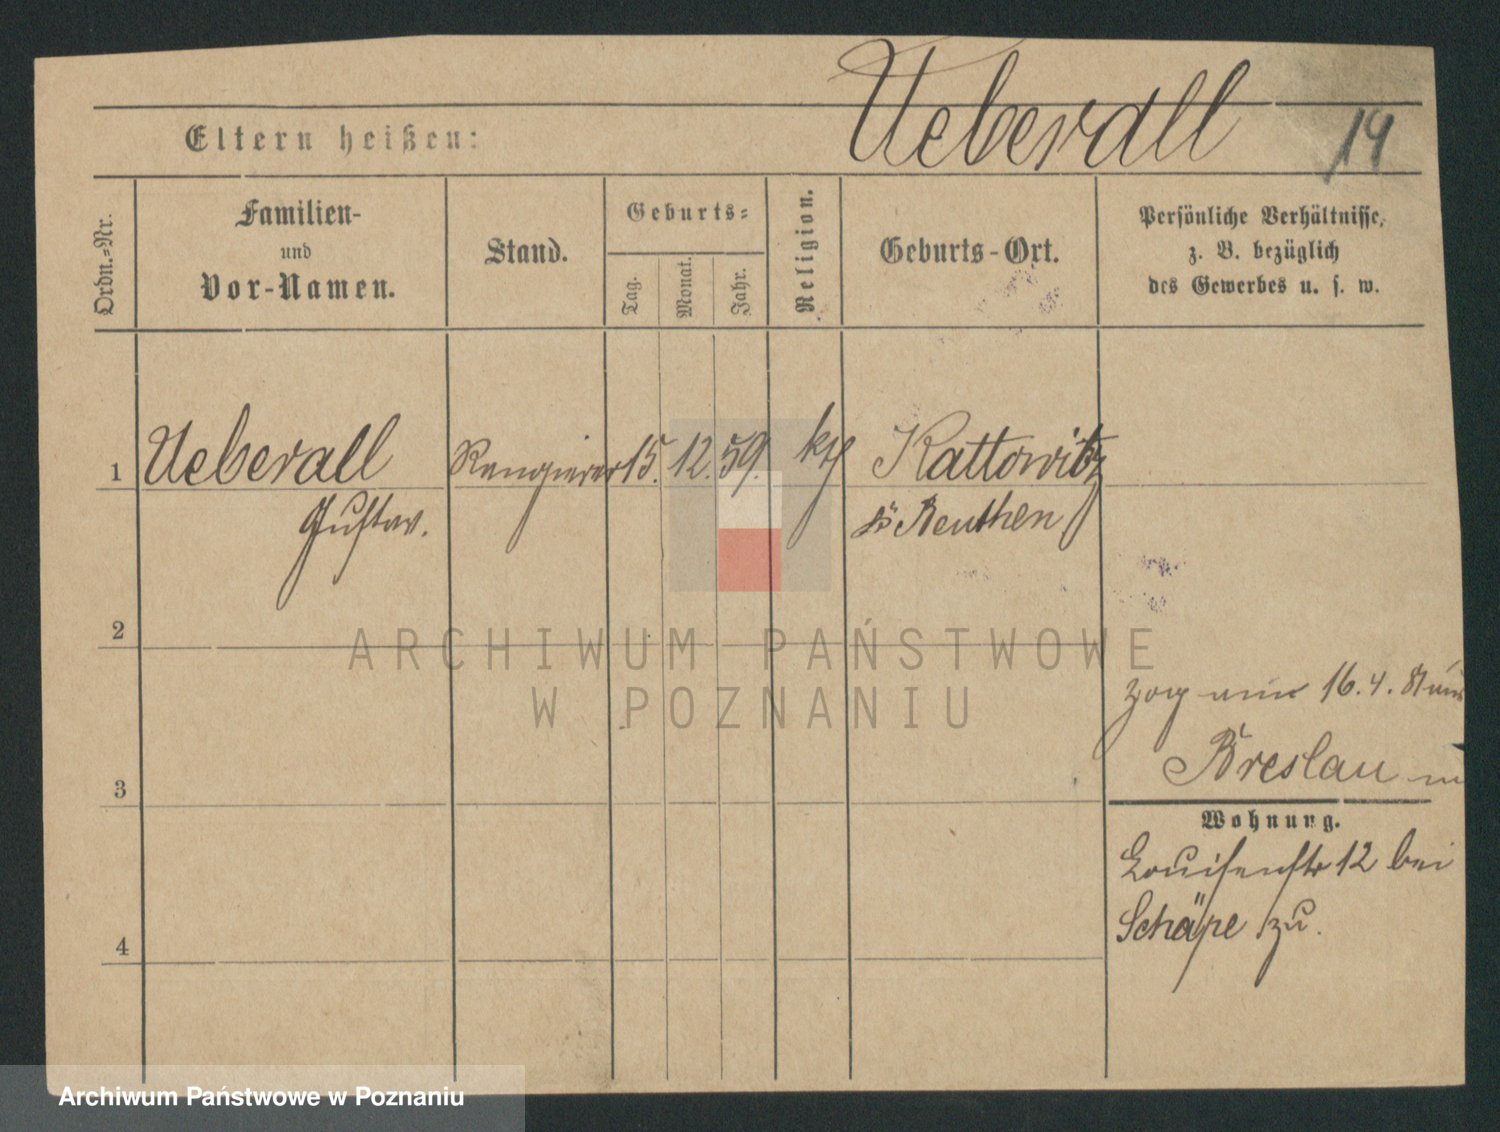 Ueberall
19
Eltern heißen:
Ordn.=Nr.
Familien-
und
Vor-Namen.
Stand.
Geburts=
Tag.
Monat.
Jahr.
Religion.
Geburts-Ort.
Persönliche Verhältnisse,
z. B. bezüglich
des Gewerbes u. s. w.
1 Ueberall Rangierer 15. 12. 59. kth Kattowitz
Gustav. Beuthen
2
ARCHIWUM PAŃSTWOWE
W POZNANIU
zog am 16. 4.
Breslau
3
Wohnung.
Louisenstr 12 bei
Schäpe zu.
4
Archiwum Państwowe w Poznaniu